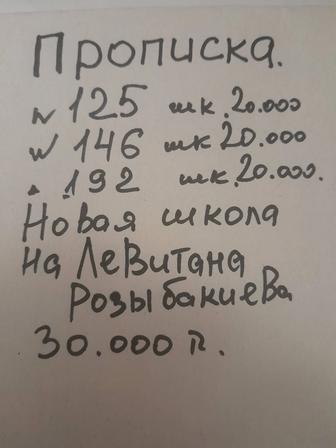 Прописка.
N 125 шк. 20.000
N 146 шк 20.000
192 шк. 20.000.
Новая школа
на Левитана
Розыбакиева
30.000 т.